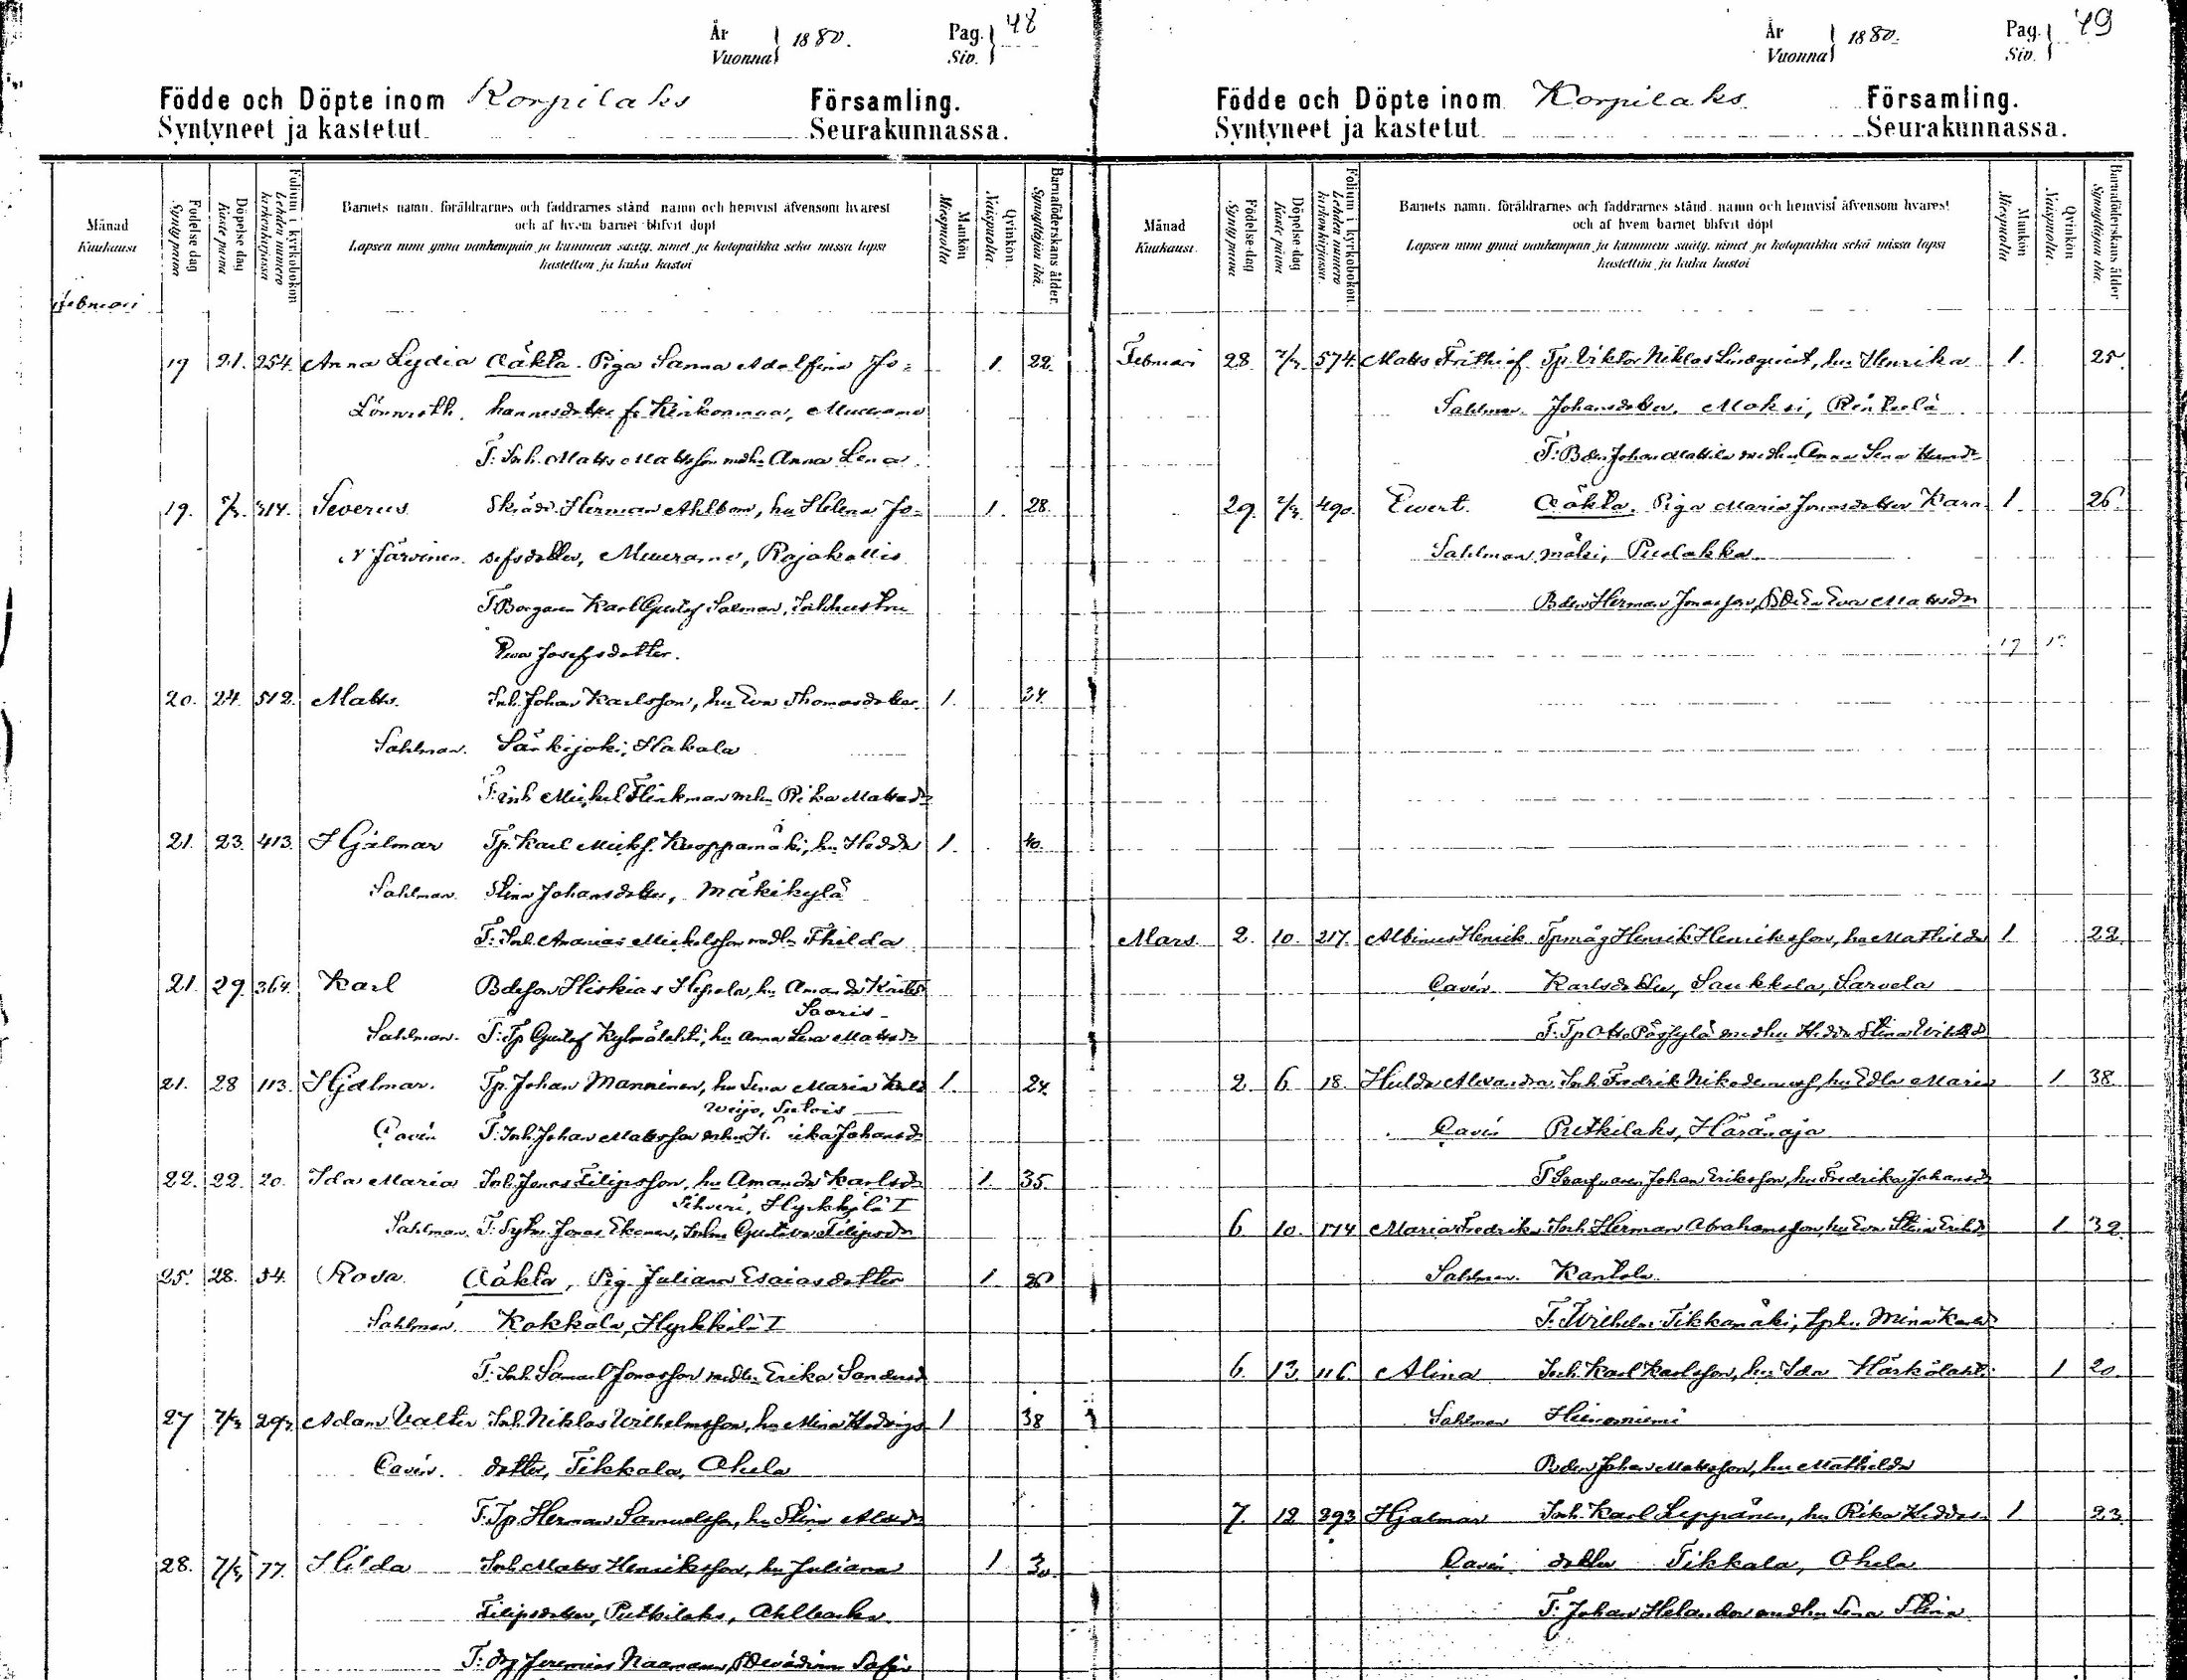 År
Vuonna } 1880.
Pag.
Siv. } 48
Födde och Döpte inom Korpilaks Församling.
Syntyneet ja kastetut Seurakunnassa.
Månad
Kuukausi
Födelse-dag
Syntypäivä
Döpelse-dag
Kaste päivä
Folium i kyrkoboken
Lehden numero kirkonkirjassa
Barnets namn, föräldrarnes och faddrarnes stånd, namn och hemvist äfvensom hvarest
och af hvem barnet blifvit döpt
Lapsen nimi ynnä vanhempain ja kummein sääty, nimet ja kotopaikka sekä missä lapsi
kastettiin ja kuka kastoi
Mankön
Miespuolia
Qvinkön.
Naispuolia.
Barnaföderskans ålder.
Synnyttäjän ikä.
Februari
19 21. 254. Anna Lydia Oäkta. Piga Sanna Adolfina Jo= 1. 22.
Lönnroth. hannesdotter fr Kinkomaa, Muurame
F: Inh. Matts Mattsson mdhu Anna Lena
19. 7/3. 314. Severus Skrädd. Herman Ahlbom, hu Helena Jo= 1. 28.
N Järvinen. sefsdotter, Muurame, Rajakallio
F: Borgaren Karl Gustaf Salman, Inhhustru
Eva Josefsdotter.
20. 24. 512. Matts. Inh. Johan Karlsson, hu Eva Thomasdotter 1. 34.
Sahlman. Särkijoki, Hakala
F: inh Michel Flinkman mhu Rika Mattsdr
21. 23. 413. Hjalmar Tp. Karl Mickf. Kuoppamäki, hu Hedda 1. 40.
Sahlman. Stina Johansdotter, Mäkikylä
F: Inh. Ananias Mickelsson mdhu Thilda
21. 29. 364. Karl Bdeson Hiskias Hepola, hu Amanda
Saaris
Sahlman. F: Tp Gustaf Kylmälahti, hu Anna Lena Mattsdr
21. 28 113. Hjalmar. Tp. Johan Manninen, hu Lena Maria 1. 24.
Cavén F: Inh. Johan Mattsson mhu Johansdr
22. 22. 20. Ida Maria Inh. Jonas Filipsson, hu Amanda Karlsdr 1 35.
Hyrkkylä I
Sahlman. F: Jonas Ekonen, Gustava Filipsdr
25. 28. 54. Rosa. Oäkta, Pig. Juliana Esaiasdotter 1
Sahlman. Kokkola, Hyrkkilä I
F: Inh. Samuel Jonasson mdhu Erika Sandersdr
27 7/3 297. Adam Valter Inh. Niklas Wilhelmsson, hu Mina Hedvigs 1 38
Cavén. dotter, Tikkala, Ohela
F: Tp. Herman Samuelsson, hu Stina
28. 7/3. 77. Hilda Inh. Matts Henriksson, hu Juliana 1 30.
Filipsdotter, Putkilaks, Ahlbacka
F: Jeremias Naamanss, Sofia
År
Vuonna } 1880.
Pag.
Siv. } 49
Födde och Döpte inom Korpilaks. Församling.
Syntyneet ja kastetut Seurakunnassa.
Månad
Kuukausi.
Födelse-dag
Syntypäivä
Döpelse-dag
Kaste päivä
Folium i kyrkoboken.
Lehden numero kirkonkirjassa.
Barnets namn, föräldrarnes och faddrarnes stånd, namn och hemvist äfvensom hvarest
och af hvem barnet blifvit döpt
Lapsen nimi ynnä vanhempain ja kummein sääty, nimet ja kotopaikka sekä missä lapsi
kastettiin ja kuka kastoi
Mankön
Miespuolia
Qvinkön
Naispuolia.
Barnaföderskans ålder
Synnyttäjän ikä.
Februari 28 7/3. 574. Matts Frithiof Tp. Viktor Niklas Lindqvist, hu Henrika 1. 25.
Sahlman Johansdotter, Moksi,
F: Bden Johan Mattila mdhu Anna Lena
29. 490. Evert. Oäkta. Piga Maria Jonasdotter Kara 1. 26.
Sahlman. mäki, Puolakka
Bden Herman Jonasson, Eva Mattsdr
17
Mars. 2. 10. 217. Albinus Henrik Tpmåg Henrik Henriksson, hu Mathilda 1 22.
Cavén Karlsdotter, Saukkola, Sarvela
F: Tp Otto mdhu Hedda Stina
2. 6 18. Hulda Alexandra Inh. Fredrik Nikodemusf, hu Edla Maria 1 38.
Cavén Putkilaks, Häränoja
F: Johan Eriksson, hu Fredrika Johansdr
6 10. 174 Maria Fredrika Inh. Herman Abrahamsson, hu Eva Stina 1 39.
Sahlman. Kantola
F: Wilhelm Tikkamäki, Mina
6. 13. 116. Alina Inh. Karl Karlsson, hu Ida Härkölaht. 1 20.
Sahlman Hiironiemi
Bden Johan Mattsson, hu Mathilda
7. 12 393 Hjalmar Inh. Karl Leppänen, hu Rika Heddas 1 23.
Cavén dotter Tikkala, Ohela
F: Johan Helander mdhu Lena Stina